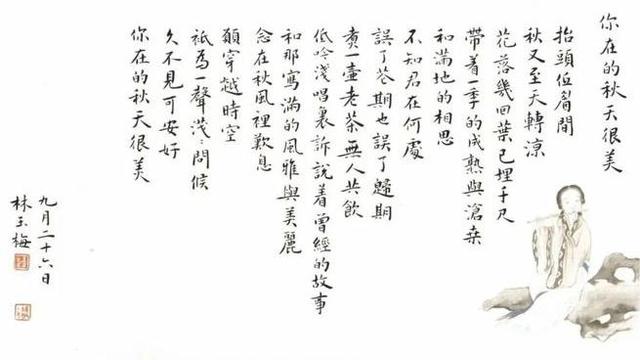 你在的秋天很美
抬頭低眉間
秋又至天轉涼
花落幾回葉已埋千尺
帶着一季的成熟與滄桑
和滿地的相思
不知君在何處
誤了花期也誤了歸期
煮一壺老茶無人共飲
低吟淺唱裏訴説着曾經的故事
和那寫滿的風雅與美麗
念在秋風裡歎息
願穿越時空
祇為一聲淺淺問候
久不見可安好
你在的秋天很美
九月二十六日
林玉梅